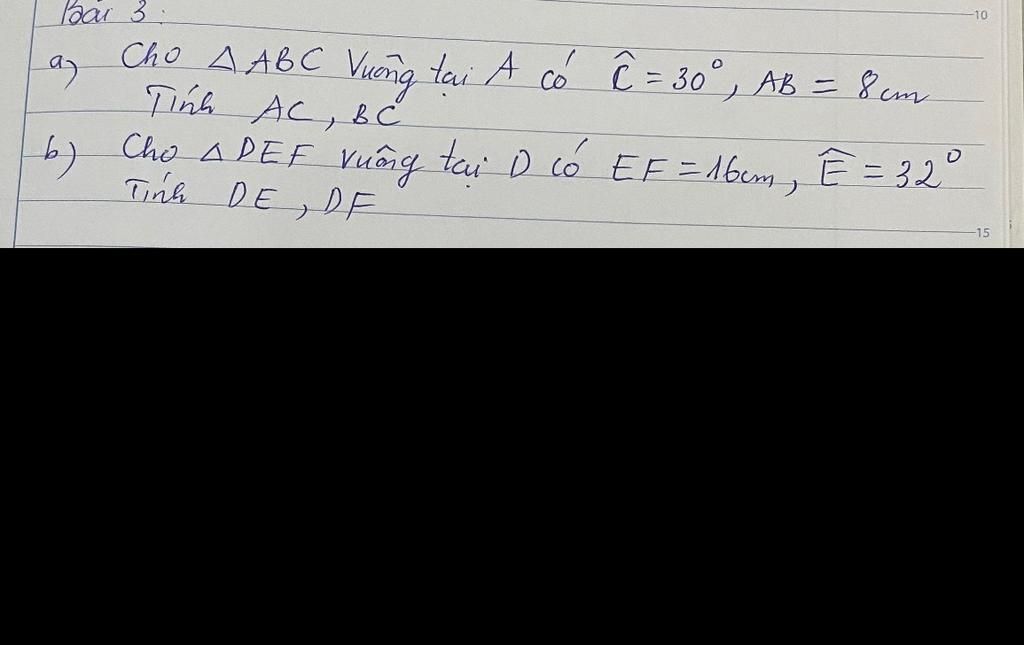 Bài 3:
10
a) Cho △ABC Vuông tại A có Ĉ = 30°, AB = 8cm
Tính AC, BC
b) Cho △DEF vuông tại D có EF = 16cm, Ê = 32°
Tính DE, DF
15